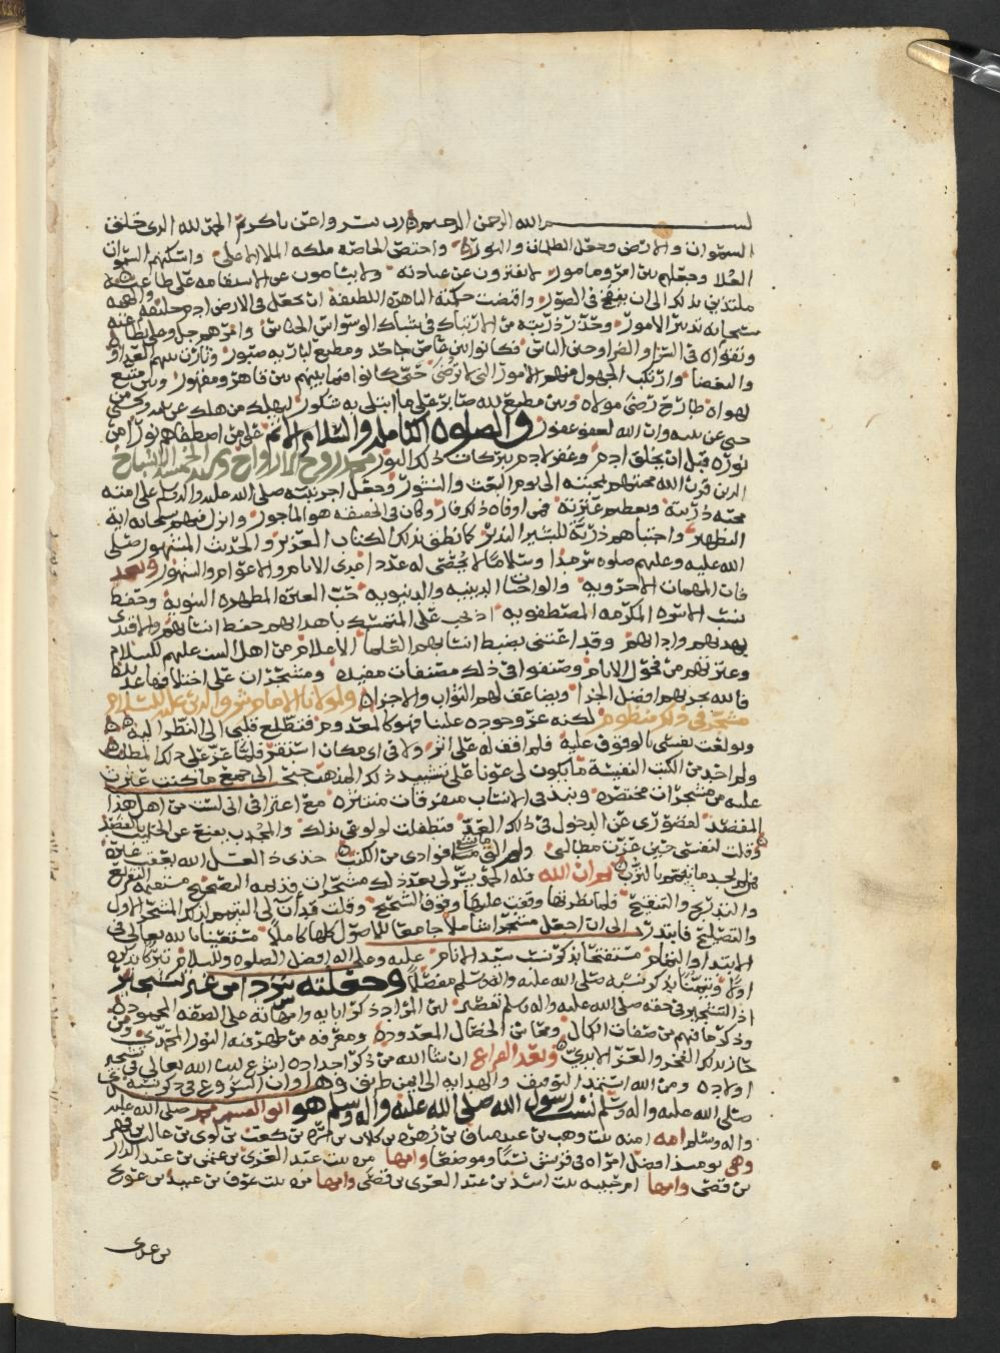 بسم الله الرحمن الرحيم رب يسر واعن ياكريم الحمد لله الذي خلق
السموات والارض وجعل الظلمات والنور واختص لخاصة ملكه الملا الاعلى واسكنهم السموات
العلا وجعلهم بين امر ومامور لا يفترون عن عبادته ولا يسامون عن الاستقامه على طاعته
ملتذين بذلك الى ان ينفخ في الصور واقتضت حكمته الباهرة اللطيفة ان يجعل في الارض ادم خليفه والهمه
سبحانه تدبير الامور وحذر ذريته من الارتباك في شباك الوسواس الخناس وامرهم جل وعلا بطاعته
وتقواه في السرا والضرا وحين الباس فكانوا بين عاص جاحد ومطيع لباريه صبور وثارت بينهم العداوة
والبغضا وارتكب الجهول منهم الامور التي لا ترضى حتى كانوا فيما بينهم بين قاهر ومقهور وبين متبع
لهواه طارح رضى مولاه وبين مطيع لله صابر على ما ابتلى به شكور ليهلك من هلك عن بينه ويحيى من
حيى عن بينه وان الله لعفو غفور والصلوه الكامله والسلام الاتم على من اصطفاهم نورا من
نوره قبل ان يخلق ادم وغفر لادم ببركات ذلك النور محمد روح الارواح الخمسه الاشباح
الذين قرن الله محبتهم لمحبته الى يوم البعث والنشور وجعل اجر نبيه صلى الله عليه واله وسلم على امته
محبه ذريته وتعظيم عترته فمن اوفاه ذلك فاز وكان في الحقيقه هو الماجور وانزل فيهم سبحانه اية
التطهير واجتباهم ذرية للبشير النذير كما نطق بذلك الكتاب العزيز والحديث المشهور صلى
الله عليه وعليهم صلوه سرمدا وسلاما لا يحصى له عددا مدى الايام والاعوام والشهور وبعد
فان المهمات الاخرويه والواجبات الدينيه والدنيويه حب العترة المطهره النبوية وحفظ
نسب الاسره المكرمه المصطفويه اذ يجب على المتمسك باهدابهم حفظ انسابهم والاقتدى
بهديهم وادابهم وقد اعتنى بضبط انسابهم العلما الاعلام من اهل البيت عليهم السلام
وغيرهم من فحول الانام وصنفوا في ذلك مصنفات مفيده ومشجرات على اختلافها عديده
فالله يجزيهم افضل الجزا ويضاعف لهم الثواب والاجزا ولمولانا الامام شرف الدين عليه السلام
مشجر في ذلك منظوم لكنه عز وجوده علينا فهو كالمعدوم فتطلع قلبي الى النظر اليه
وتولعت نفسي بالوقوف عليه فلم اقف له على اثر ولا في اي مكان استقر فلما عز علي ذلك المطلب
ولم اجد من الكتب النفيسة ما يكون لي عونا على تشييد ذلك المذهب جنحت الى جمع ما كنت عثرت
عليه من مشجرات مختصره ونبذ في الانساب متفرقات منتثره مع اعترافي اني لست من اهل هذا
المقصد لقصوري عن الدخول في ذلك العدد فتطفلت لولوعي بذلك والمجدب يقنع عن الخليب بالقصد
وقلت لنفسي حين عزت مطالبي ولم الق ما يشفي فوادي من الكتب خذي ذا لعل الله يعقب غيره
فمن لم يجد ماء تيمم بالترب ثم وان الله فله الحمد يسر لي بعد ذلك مشجرات قديمه التصحيح مستقيمه التفريع
والتدريج والتنقيح فلما نظرتها وقفت عليها وقوف الشحيح وقلت قد ان لي التتميم لذلك المشجر الاول
والتصليح فابتدرت الى ان اجعل مشجرا شاملا جامعا للاصول كلها كاملا مستعينا بالله تعالى في
الابتدا والتمام مستفتحا بذكر نسب سيد الانام عليه وعلى اله افضل الصلوه والسلام تبركا بذكره
اولا وتيمنا بذكر نسبه صلى الله عليه واله وسلم مفصلا وجعلته سردا من غير تشجير
اذ التشجير في حقه صلى الله عليه واله وسلم تقصير لان المراد ذكر ابايه وامهاته على الصفه المحموده
وذكر ما فيهم من صفات الكمال ومحاسن الخصال المعدوده ومعرفه من ظهر فيه النور المحمدي ومن
حاز بذلك الفخر والعز الابدي وبعد الفراغ ان شا الله من ذكر اجداده اشرع ان شا الله تعالى في تشجير
اولاده ومن الله استمد التوفيق والهدايه الى ابين طريق وهذا اوان الشروع في ذكر نسبه
صلى الله عليه واله وسلم نسب رسول الله صلى الله عليه واله وسلم هو ابو القسم محمد صلى الله عليه
واله وسلم امه امنه بنت وهب بن عبد مناف بن زهره بن كلاب بن مره بن كعب بن لوى بن غالب بن فهر
وهي يوميذ افضل امراه في قريش نسبا وموضعا وامها بره بنت عبد العزى بن عثمن بن عبد الدار
بن قصى وامها ام حبيبه بنت اسد بن عبد العزى بن قصى وامها بره بنت عوف بن عبيد بن عويج
بن عدى